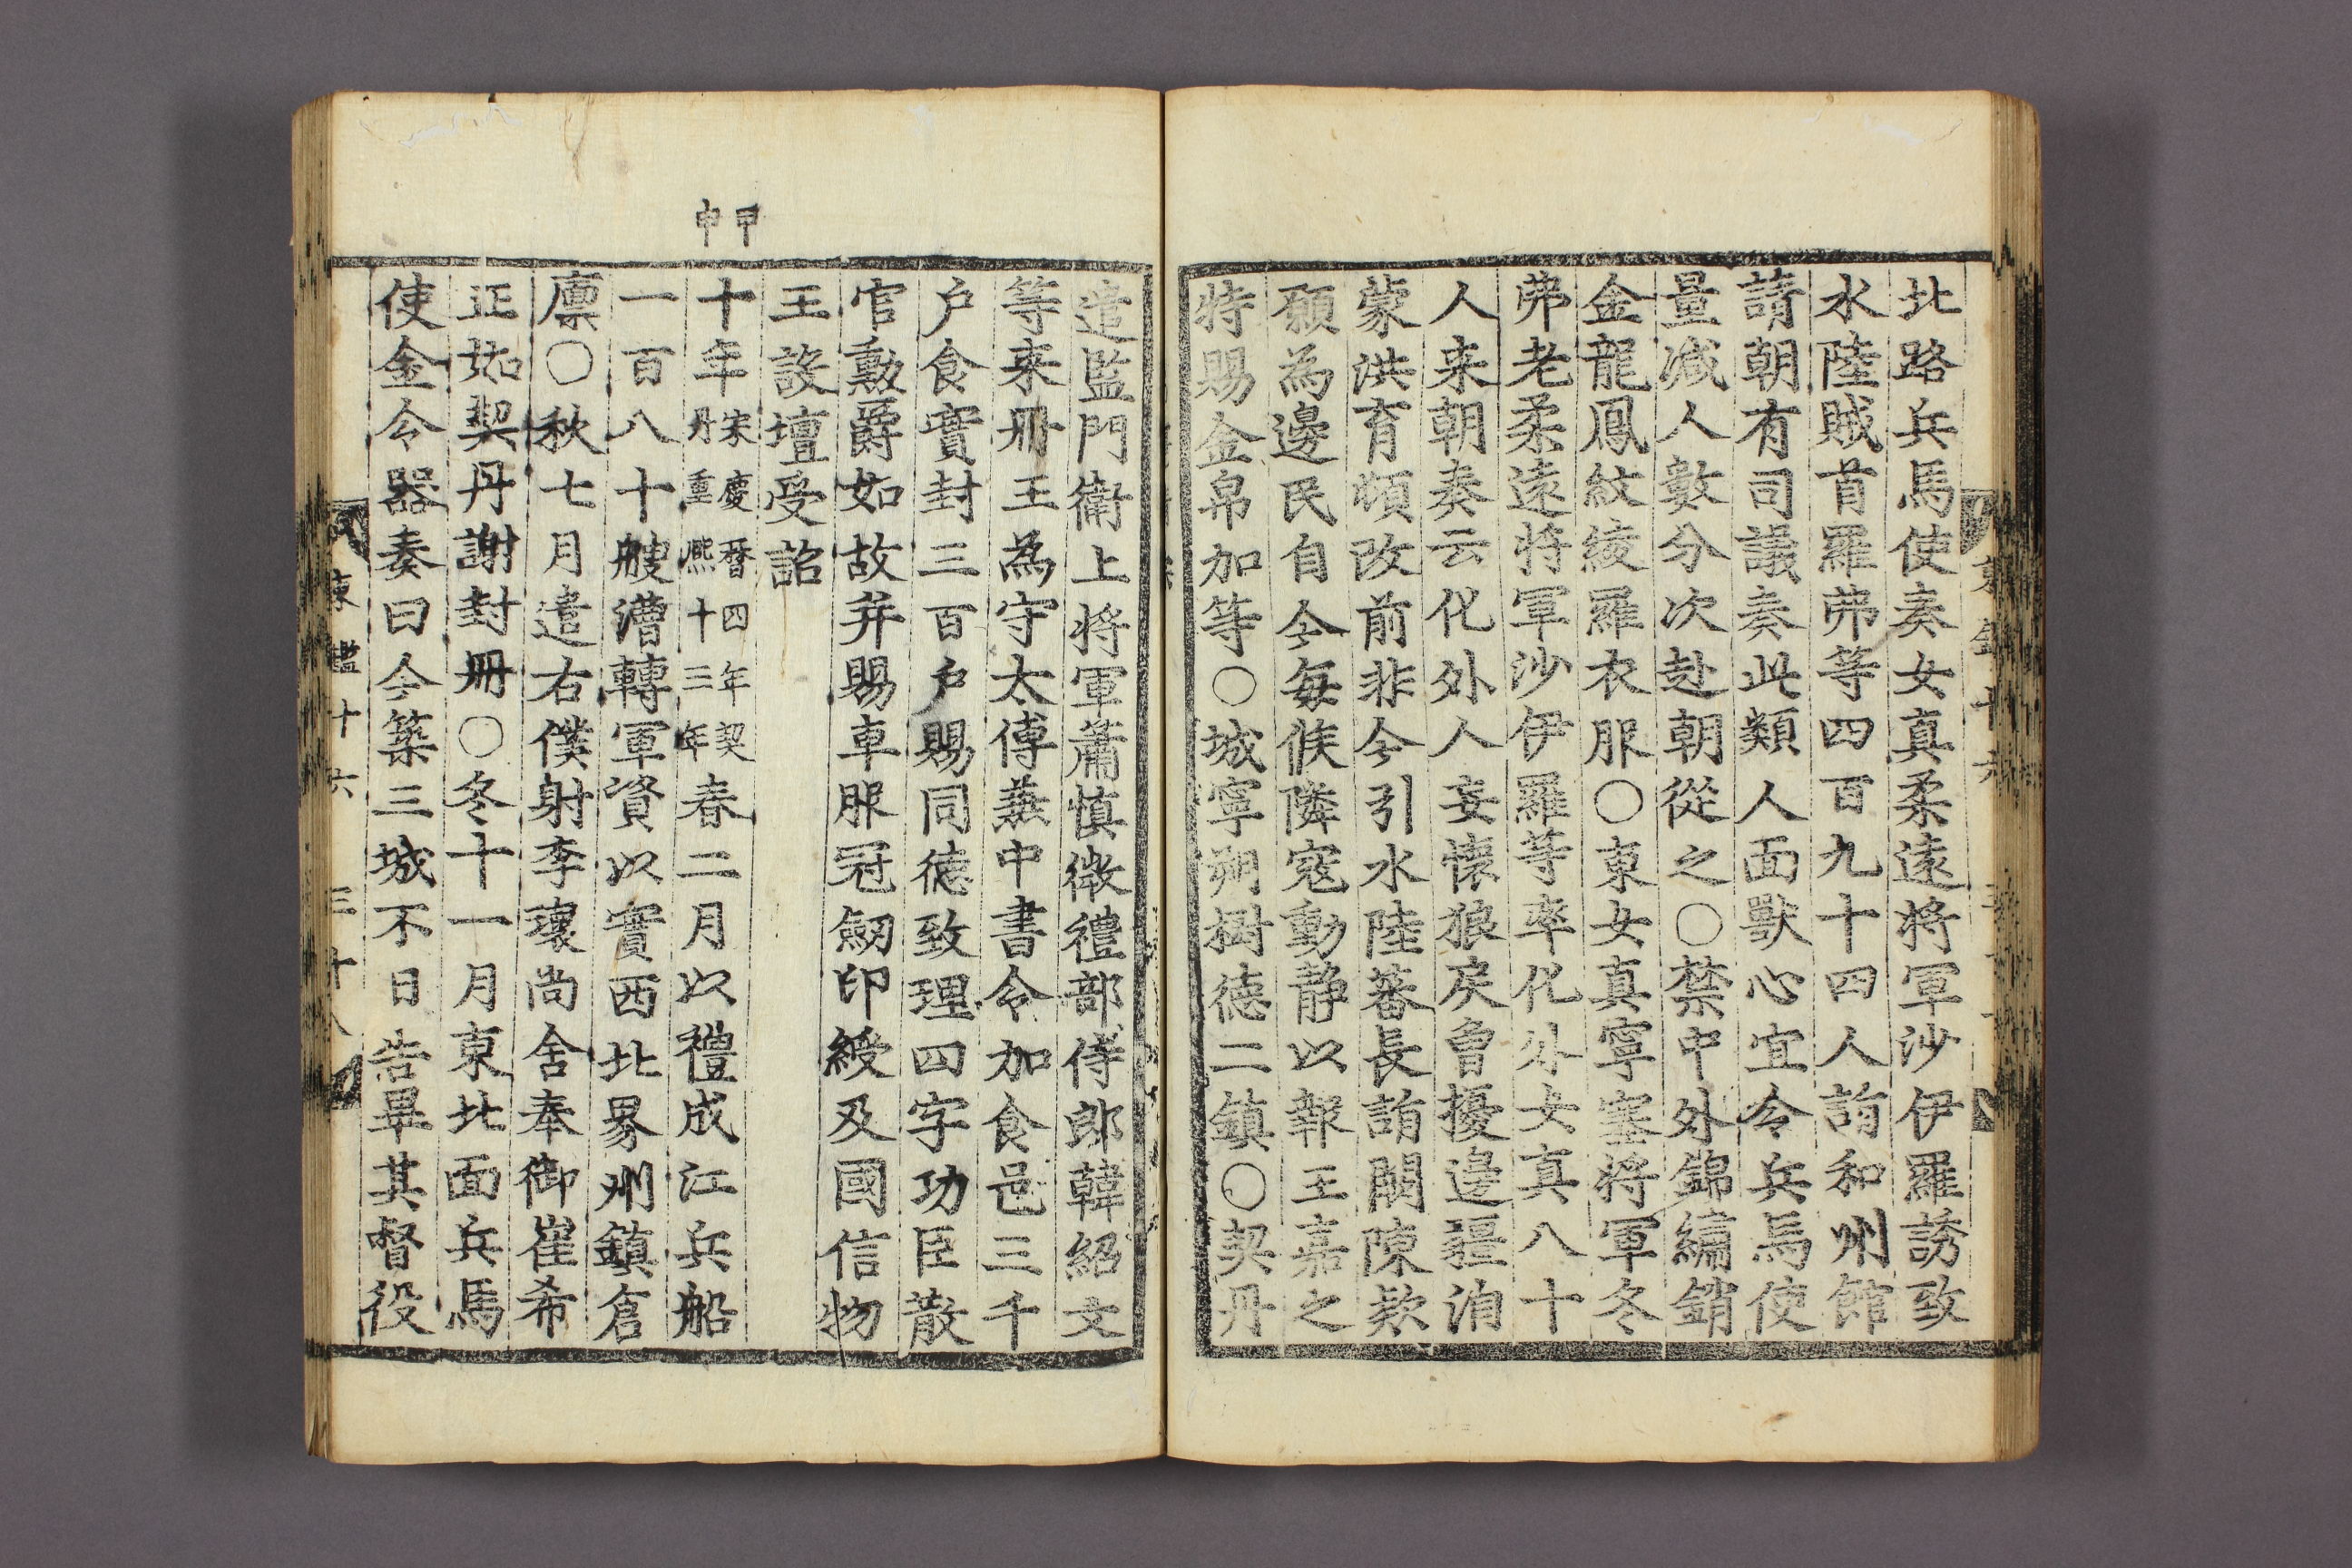 北路兵馬使奏女真柔遠將軍沙伊羅誘致
水陸賊首羅弗等四百九十四人詣和州館
請朝有司議奏此類人面獸心宜令兵馬使
量减人數分次赴朝從之○禁中外錦編銷
金龍鳳紋綾羅衣服○東女真寧塞將軍冬
弗老柔遠將軍沙伊羅等率化外女真八十
人来朝奏云化外人妄懷狼戾曾擾邊疆洎
蒙洪育頓改前非今引水陸蕃長詣闕陳欵
願為邊民自今每候隣寇動静以報王嘉之
特賜金帛加等○城寧朔樹德二鎮○契丹
遣監門衛上將軍蕭慎微禮部侍郎韓紹文
等来冊王為守太傅兼中書令加食邑三千
户食實封三百户賜同德致理四字功臣散
官勲爵如故并賜車服冠劒印綬及國信物
王設壇受詔
甲申
十年宋慶曆四年契丹重熈十三年春二月以禮成江兵船
一百八十艘漕轉軍資以實西北界州鎮倉
廪○秋七月遣右僕射李瓌尚舍奉御崔希
正如契丹謝封冊○冬十一月東北面兵馬
使金令器奏曰今築三城不日告畢其督役
東鑑十六 三十八